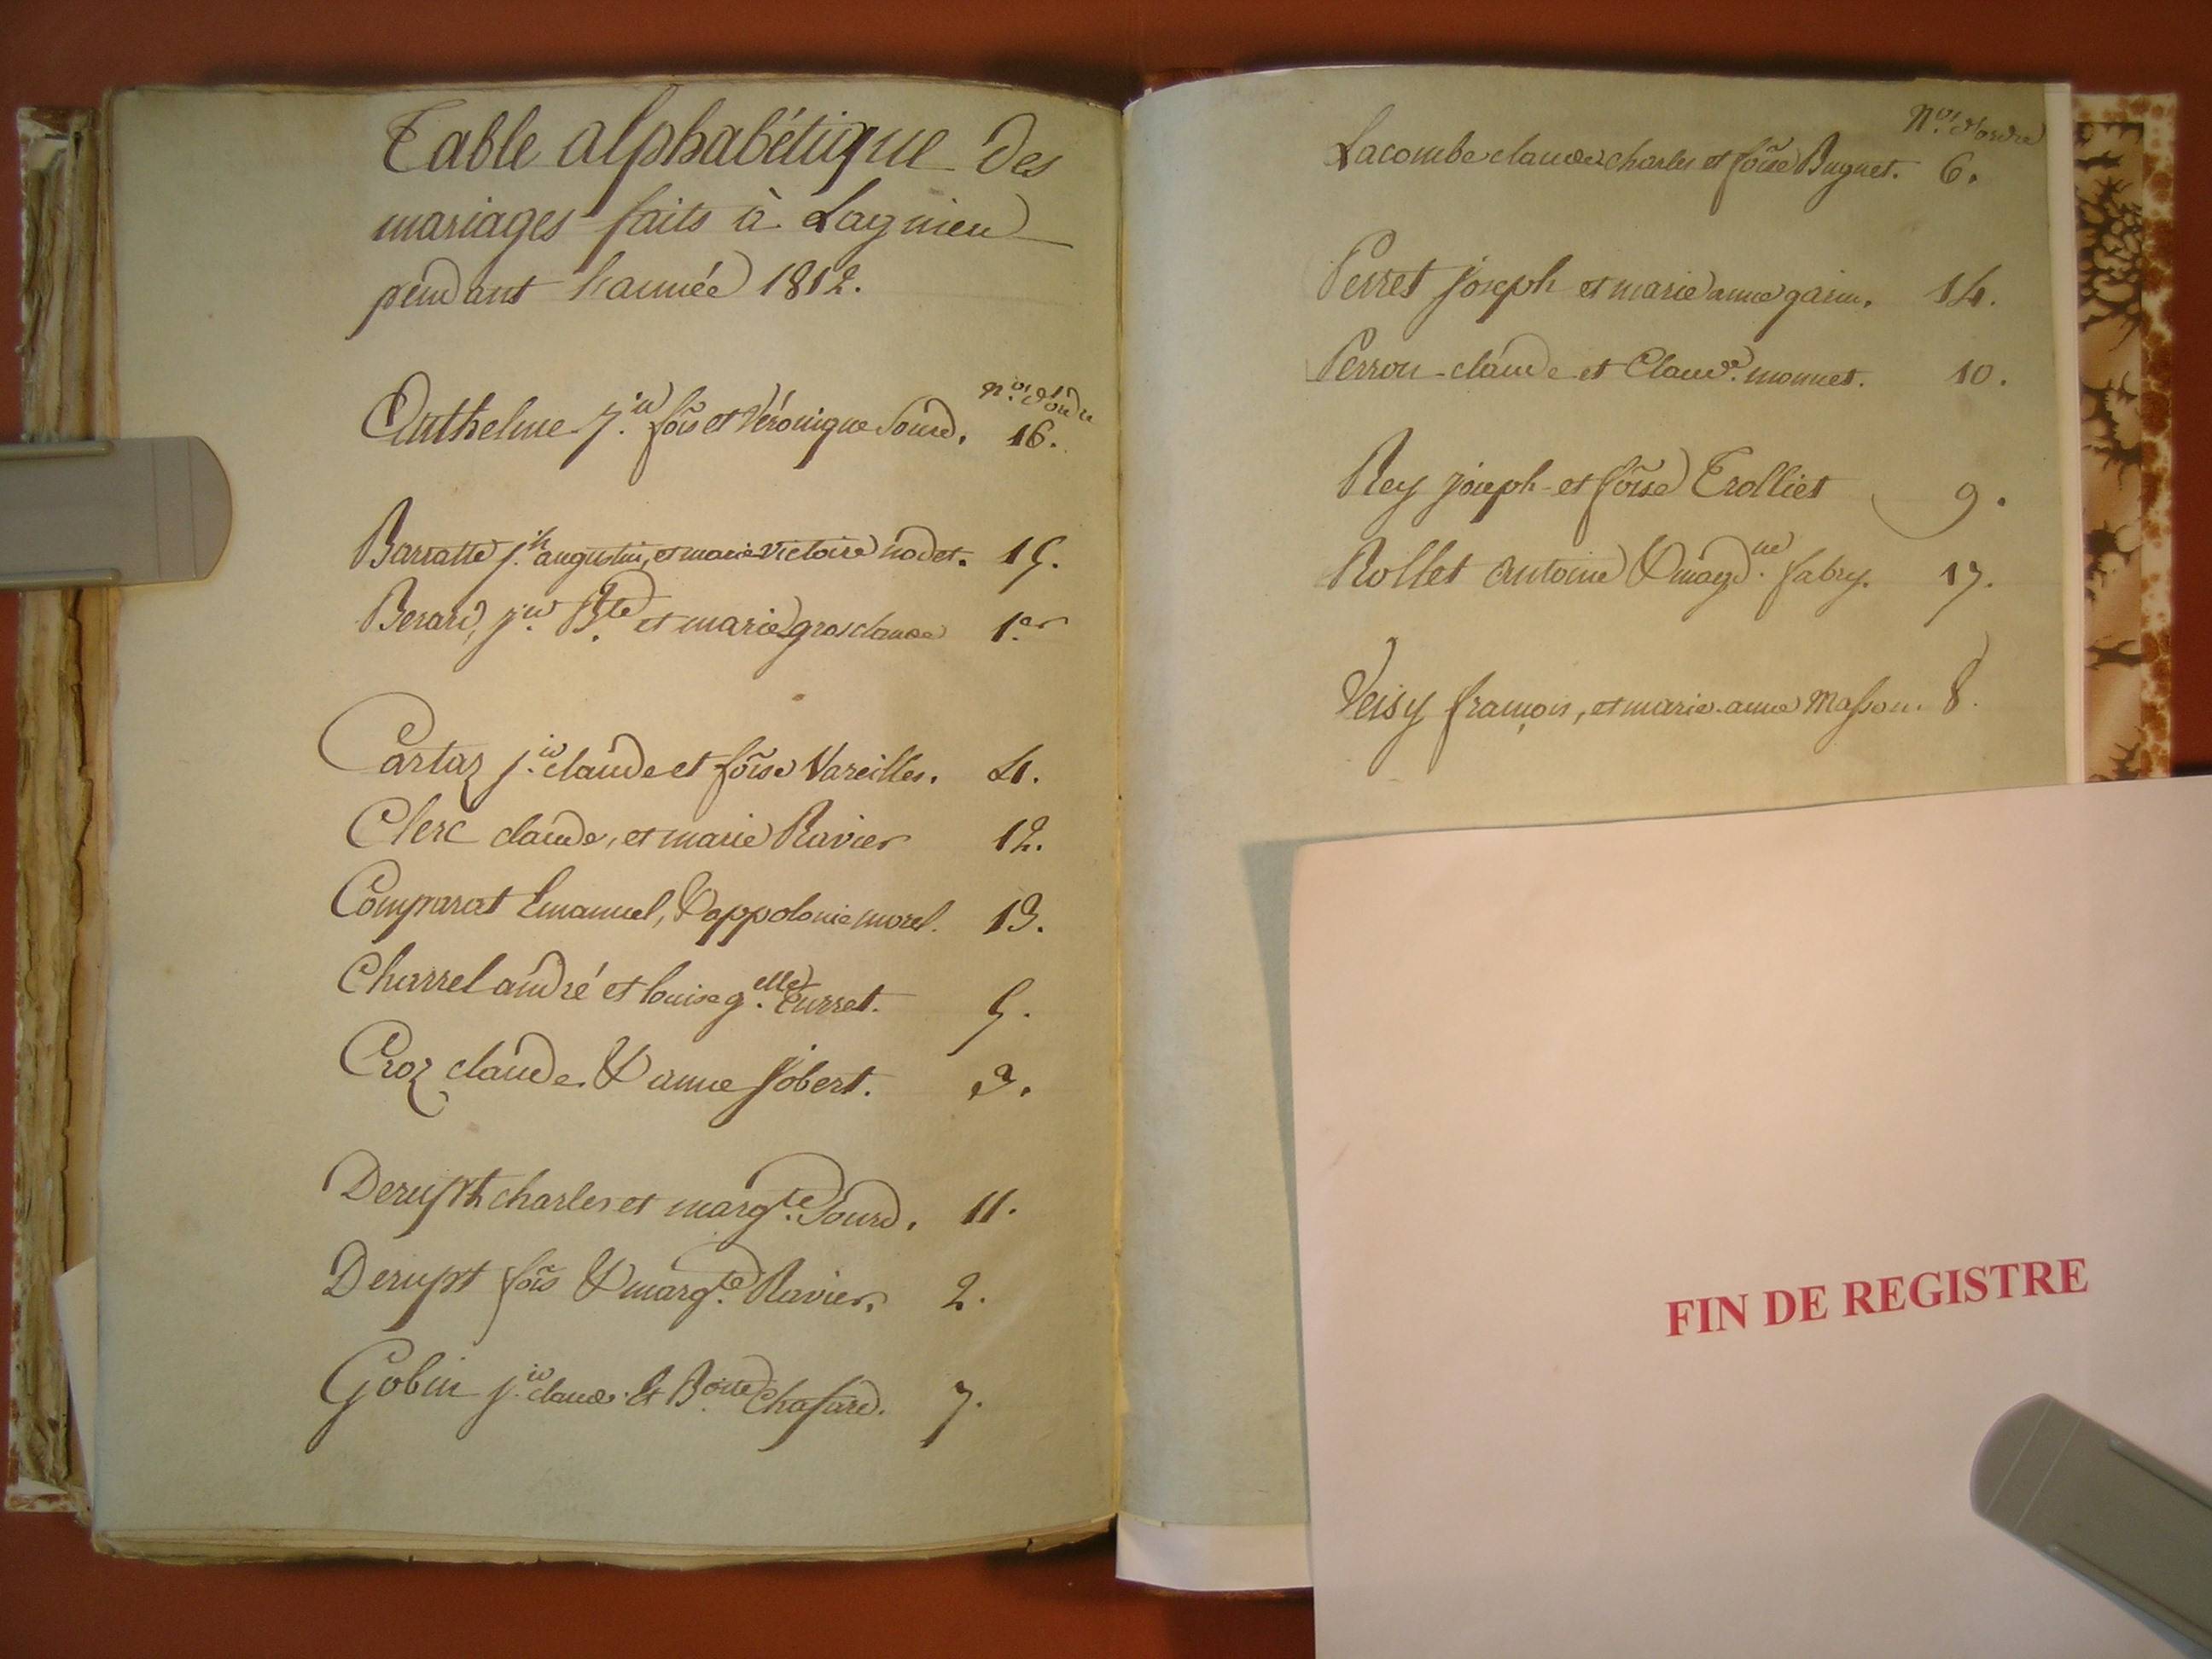 Table alphabétique des
mariages faits à Lagnieu
pendant l'année 1812.
nos. d'ordre
Anthelme j.n fois et Véronique Sourd. 16.
Barratte j.h augustin, et marie victoire nodet. 15.
Berard, j.n Bte et marie grosclaude 1.er
Cartaz j.n claude et foise Vareilles. 4.
Clerc claude, et marie Ravier 12.
Comparat Emanuel, & appolonie morel. 13.
Charrel andré et louise g.elle Curret. 5.
Croz claude. & anne jobert. 3.
Derupt charles et marg.te Sourd. 11.
Derupt fois & marg.te Ravier. 2.
Gobin j.n claude et B.oite Chasard. 7.
Nos. d'ordre
Lacombe claude charles et foise Buguet. 6.
Perret joseph et marie anne garin. 14.
Perron claude et Claud.e monnet. 10.
Rey joseph et foise Trolliet 9.
Rollet antoine & magd.ne fabry. 17.
Veisy françois, et marie anne Masson. 8.
FIN DE REGISTRE